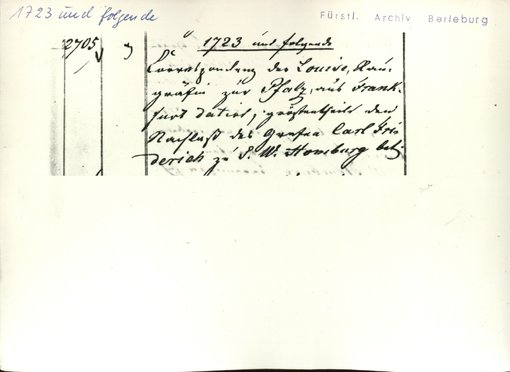 1723 und folgende
Fürstl. Archiv Berleburg
2705
1723 und folgende
Correspondenz der Louise, Rau-
gräfin zur Pfalz, aus Frank-
furt datirt, größtentheils den
Nachlaß des Grafen Carl Frie
derich zu S. W. Homburg betr.